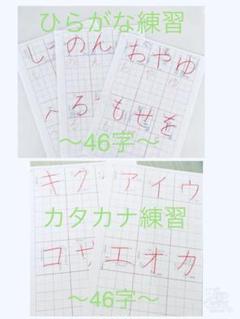 ひらがな練習
し この ん おやゆ
へ る もせを
〜46字〜
キ ク アイウ
カタカナ練習
コ サ エオカ
〜46字〜